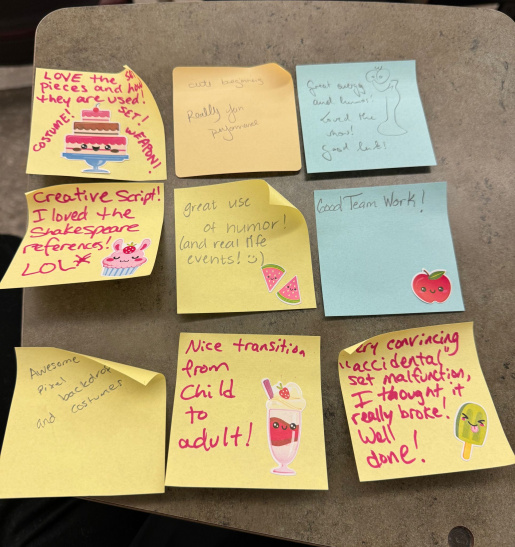 LOVE the
pieces and how
they are used!
COSTUME!
SET!
WEAPON!
cute beginning
Really fun
performance
Great energy
and humor.
Loved the
show!
Good Job!
Creative Script!
I loved the
Shakespeare
references!
LOL*
great use
of humor!
(and real life
events! :)
Good Team Work!
Awesome
Pixel
backdrop
and costumes
Nice transition
from
Child
to
adult!
convincing
"accidental
set malfunction,
I thought it
really broke!
Well
done!